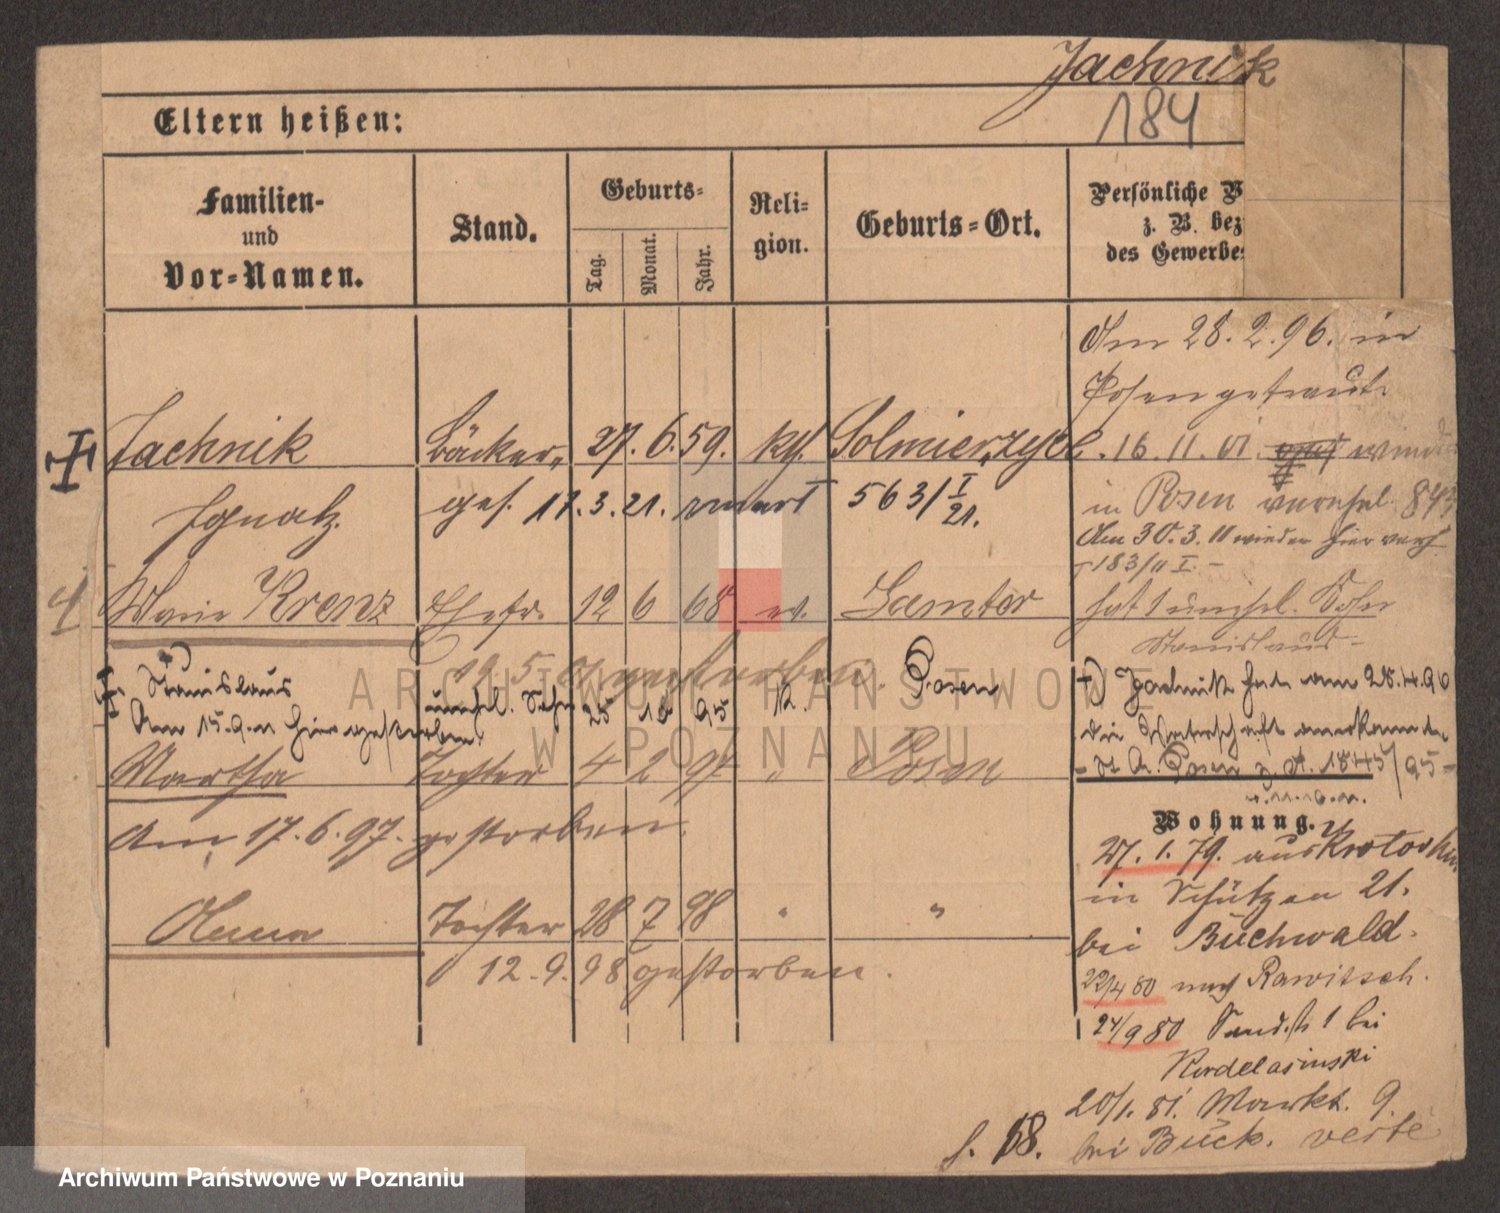 Jachnik
184
Eltern heißen:
Familien-
und
Vor-Namen.
Stand.
Geburts-
Tag.
Monat.
Jahr.
Reli-
gion.
Geburts-Ort.
Persönliche V
z. B. bez
des Gewerbe
Am 28.2.96. in
Posen getraut.
Jachnik Bäcker 27. 6. 59. kth.
16.11.01. wieder
Ignatz. gest. 17.3.21. 563/I 21.
in Posen verehel.
Am 30.3.11 wieder hier verh.
183/11 I. -
4 Marie Krenz Ehefr. 12 6 68 ev. Samter
hat 1 unehel. Sohn
Stanislaus -
gestorben.
Stanislaus unehel. Sohn 25 10 95 K. Posen
+) Jachnik hat am 28.4.96
Am 15.9.11 hier gestorben.
die Vaterschaft anerkannt
Martha Tochter 4 2 97 " Posen
- St. A. Posen z. N. 1845/95 -
Am 17.6.97. gestorben.
Wohnung.
27.1.79. aus Krotoschin
in Schützen 21.
Anna Tochter 28 7 98 " "
bei Buchwald.
12.9.98 gestorben.
22/4 80 nach Rawitsch.
24/9 80 Sandstr 1 bei
Kordelasinski
20/1.81. Markt. 9.
bei Bück.
Archiwum Państwowe w Poznaniu
ARCHIWUM PAŃSTWOWE
W POZNANIU